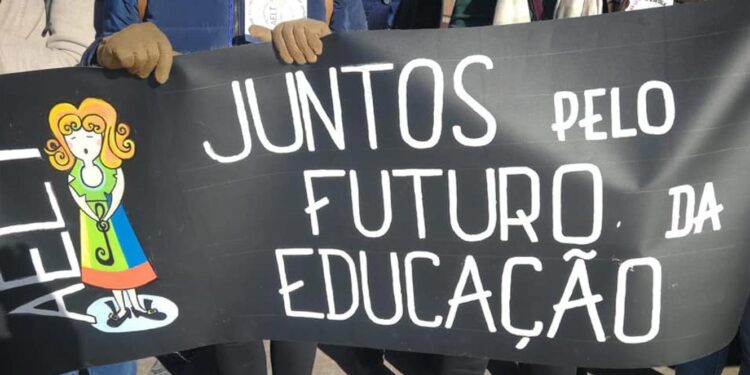 AELT
AELT
JUNTOS PELO
FUTURO DA
EDUCAÇÃO